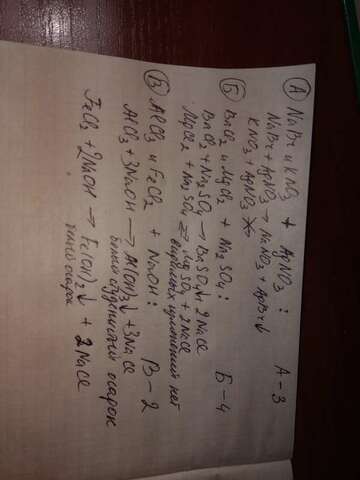 А) NaBr и KNO3 + AgNO3 :
NaBr + AgNO3 → NaNO3 + AgBr↓
KNO3 + AgNO3 ↛
А-3
Б) BaCl2 и MgCl2 + Na2SO4 :
BaCl2 + Na2SO4 → BaSO4↓ 2NaCl
MgCl2 + Na2SO4 ⇄ MgSO4 + 2NaCl
видимых изменений нет
Б-4
В) AlCl3 и FeCl2 + NaOH :
В-2
AlCl3 + 3NaOH → Al(OH)3↓ + 3NaCl
белый студенистый осадок
FeCl2 + 2NaOH → Fe(OH)2↓ + 2NaCl
осадок